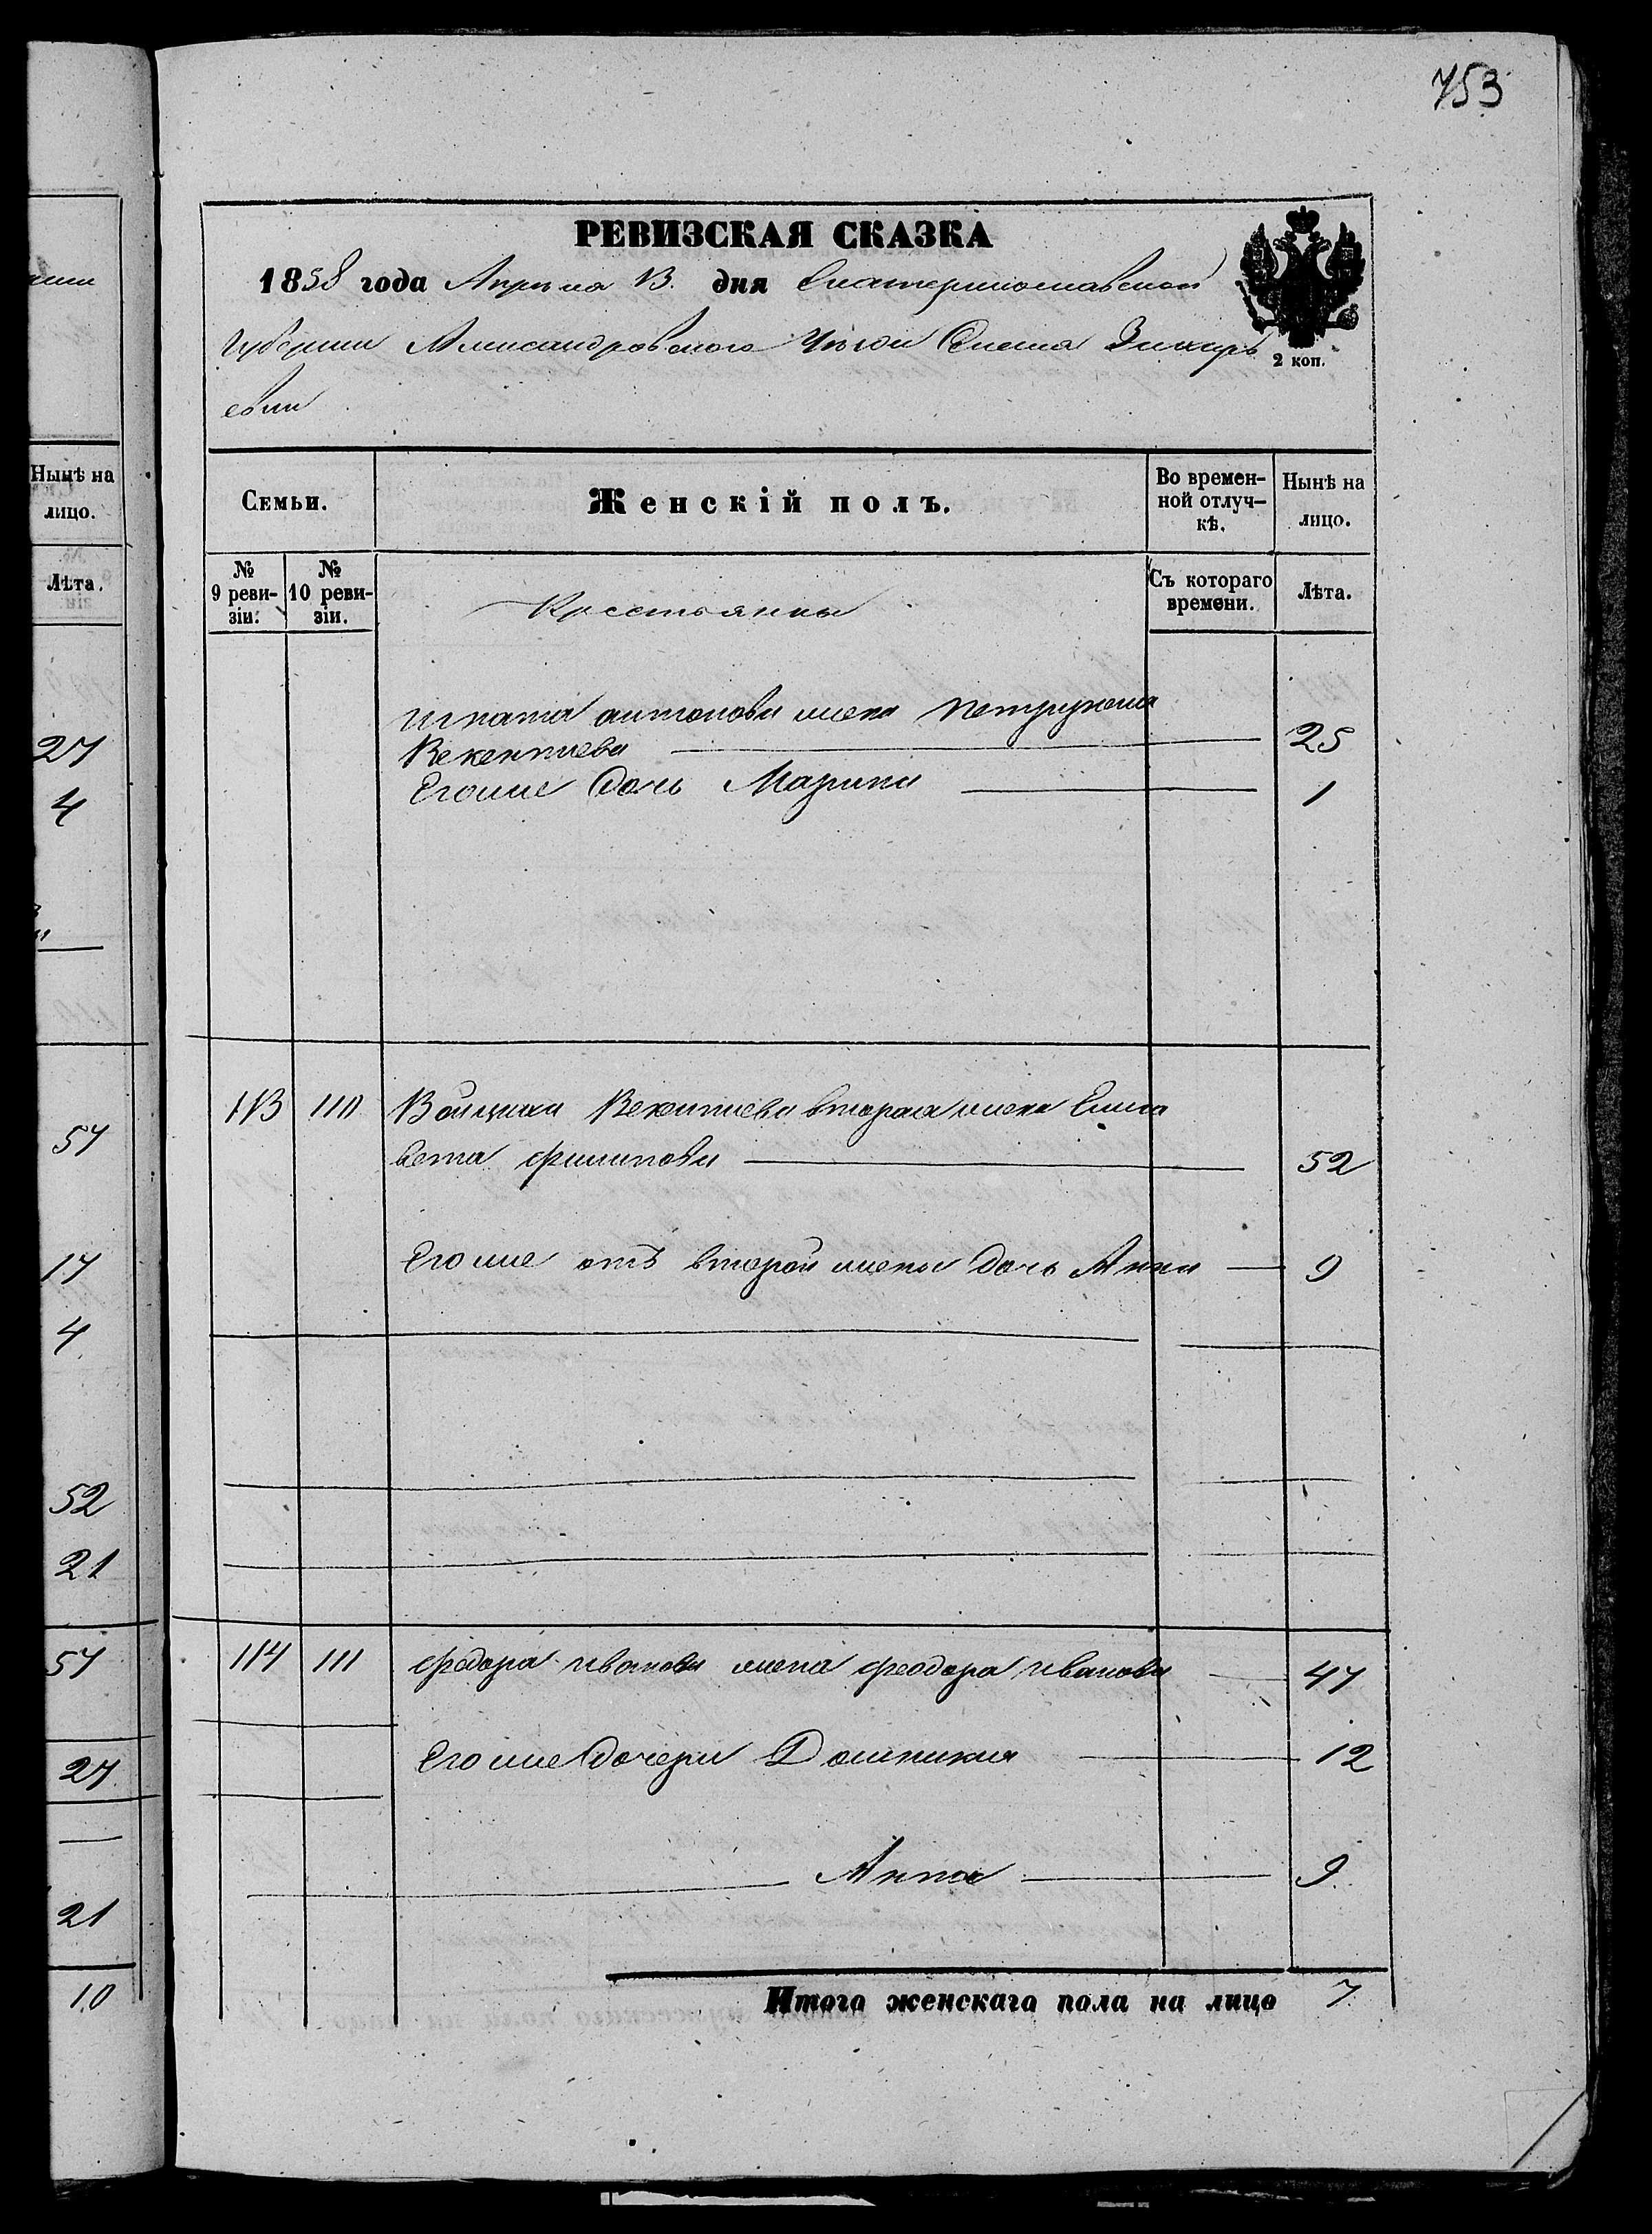 753
РЕВИЗСКАЯ СКАЗКА
1858 года Апреля 13. дня Екатеринославской
Губернии Александровского Уезда Села Захарь
евки
2 коп.
Семьи.
Женскій полъ.
Во времен-
ной отлуч-
кѣ.
Нынѣ на
лицо.
№
9 реви-
зіи.
№
10 реви-
зіи.
Крестьянки
Съ котораго
времени.
Лѣта.
Игната антонова жена
Векентиева 25
Егоже дочь Марина 1
113 110 Векентиева вторая жена Елиса
вета филипова 52
Егоже отъ второй жены дочь Анна 9
114 111 федора иванова жена феодора иванова 47
Егоже дочери Домникия 12
Анна 9
Итого женскаго пола на лицо 7
Нынѣ на
лицо.
Лѣта.
27
4
57
17
4
52
21
57
27
21
10